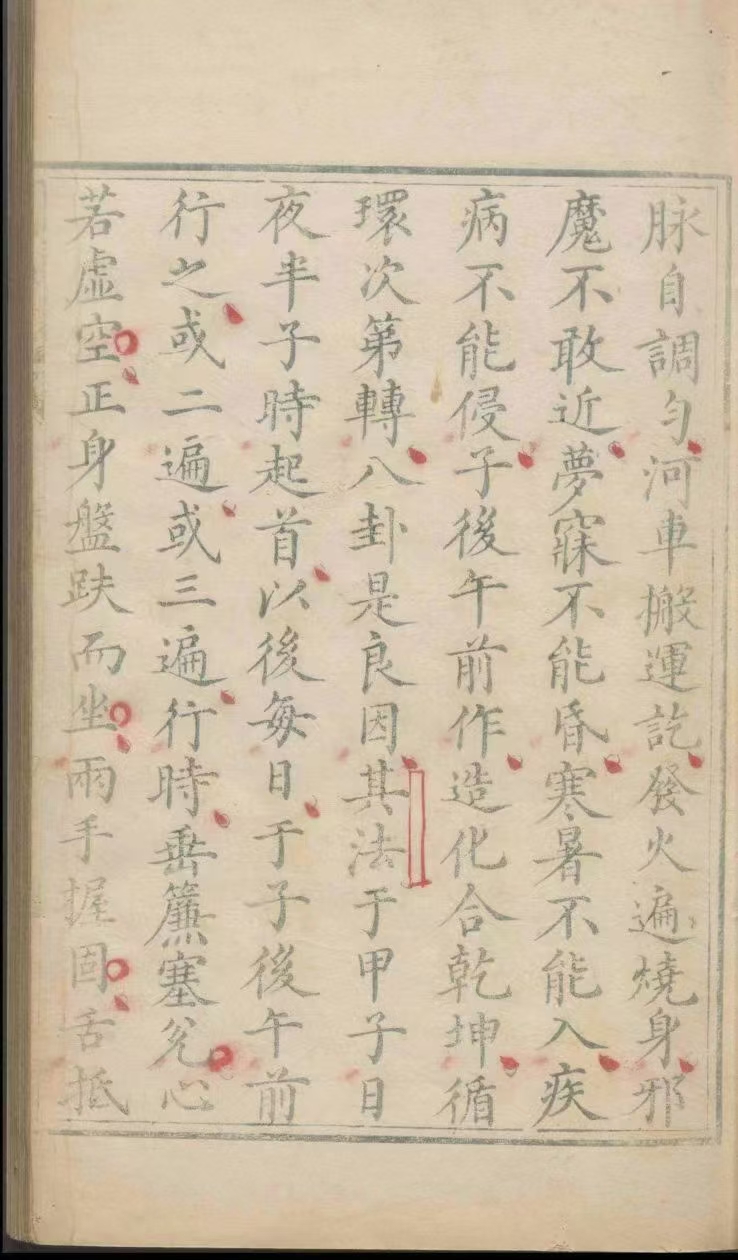 脉自調勻河車搬運訖發火遍燒身邪
魔不敢近夢寐不能昏寒暑不能入疾
病不能侵子後午前作造化合乾坤循
環次第轉八卦是良因其法于甲子日
夜半子時起首以後每日于子後午前
行之或二遍或三遍行時垂簾塞兌心
若虛空正身盤趺而坐兩手握固舌抵